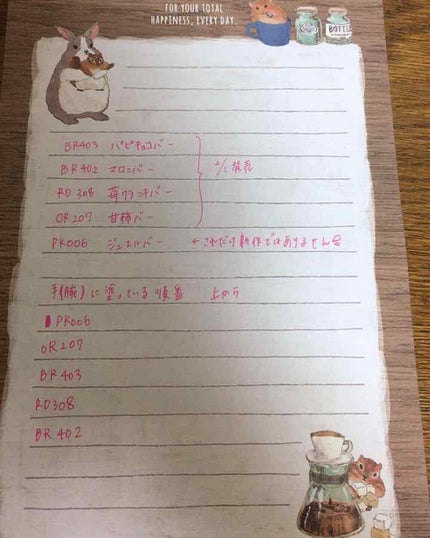 FOR YOUR TOTAL
HAPPINESS, EVERY DAY.
BOTTLE
BR403 パピチョコバー
BR402 マロンバー
2/1 発売
RD308 苺クランチバー
OR207 甘柿バー
PK006 ジュエルバー ←これだけ新作ではありません
手(腕)に塗っている順番 上から
PK006
OR207
BR403
RD308
BR402